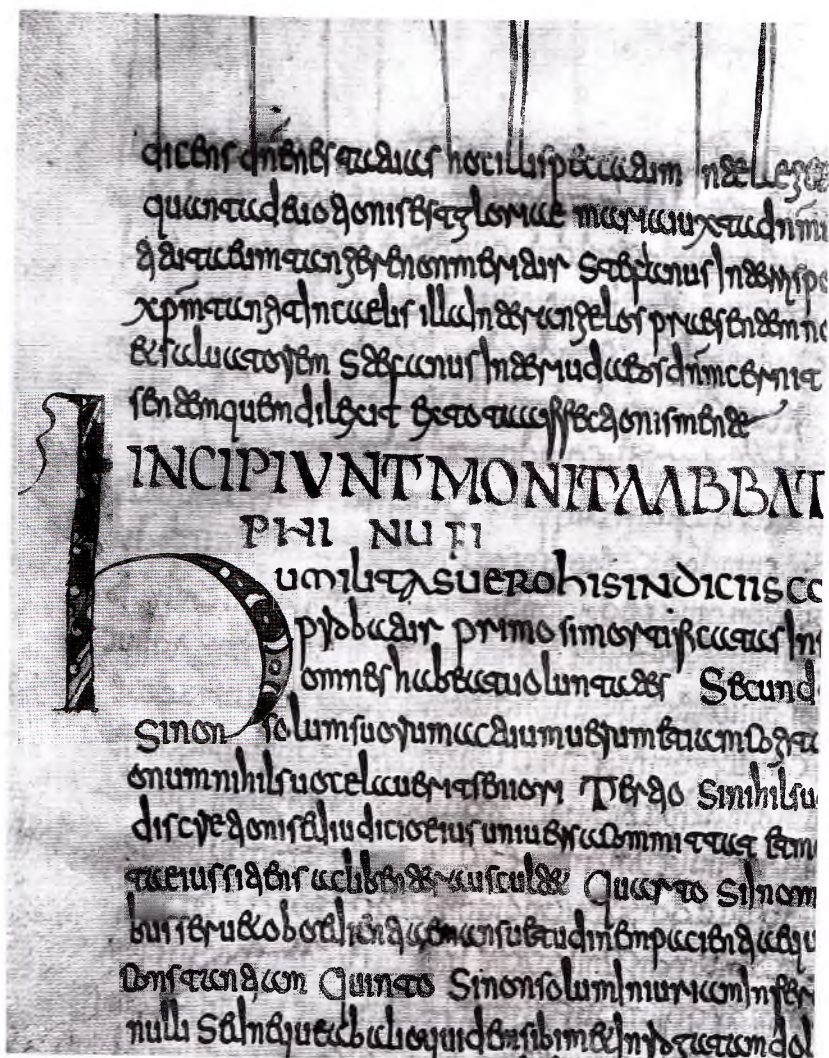 dicens dñe ne statuas hoc illis peccatum
quanta deuotionis gloriae maria iuxta
tangere non meruit Stephanus inter
xpm tangit in caelis illa inter angelos praesentem
& saluatorem Stephanus inter iudaeos dnm cernit
sentem quem dilexit ex tota affectionis mente
INCIPIUNT MONITA ABBAT
PHINUFI
humilitas uero his indiciis co
probatur primo si mortificatas in
omnes habeat uoluntates Secund
si non solum suorum actuum uerum etiam cogitati
onum nihil suo celauerit seniori Tertio si nihil su
discretionis sed iudicio eius uniuersa committat
eius sitiens ac libenter auscultet Quarto si in om
bus seru& oboedientia mansuetudinem pacientiaequ
constantiam Quinto si non solum iniuriam infer
nulli Sed neque ab alio quidem sibimet inrogatam dol